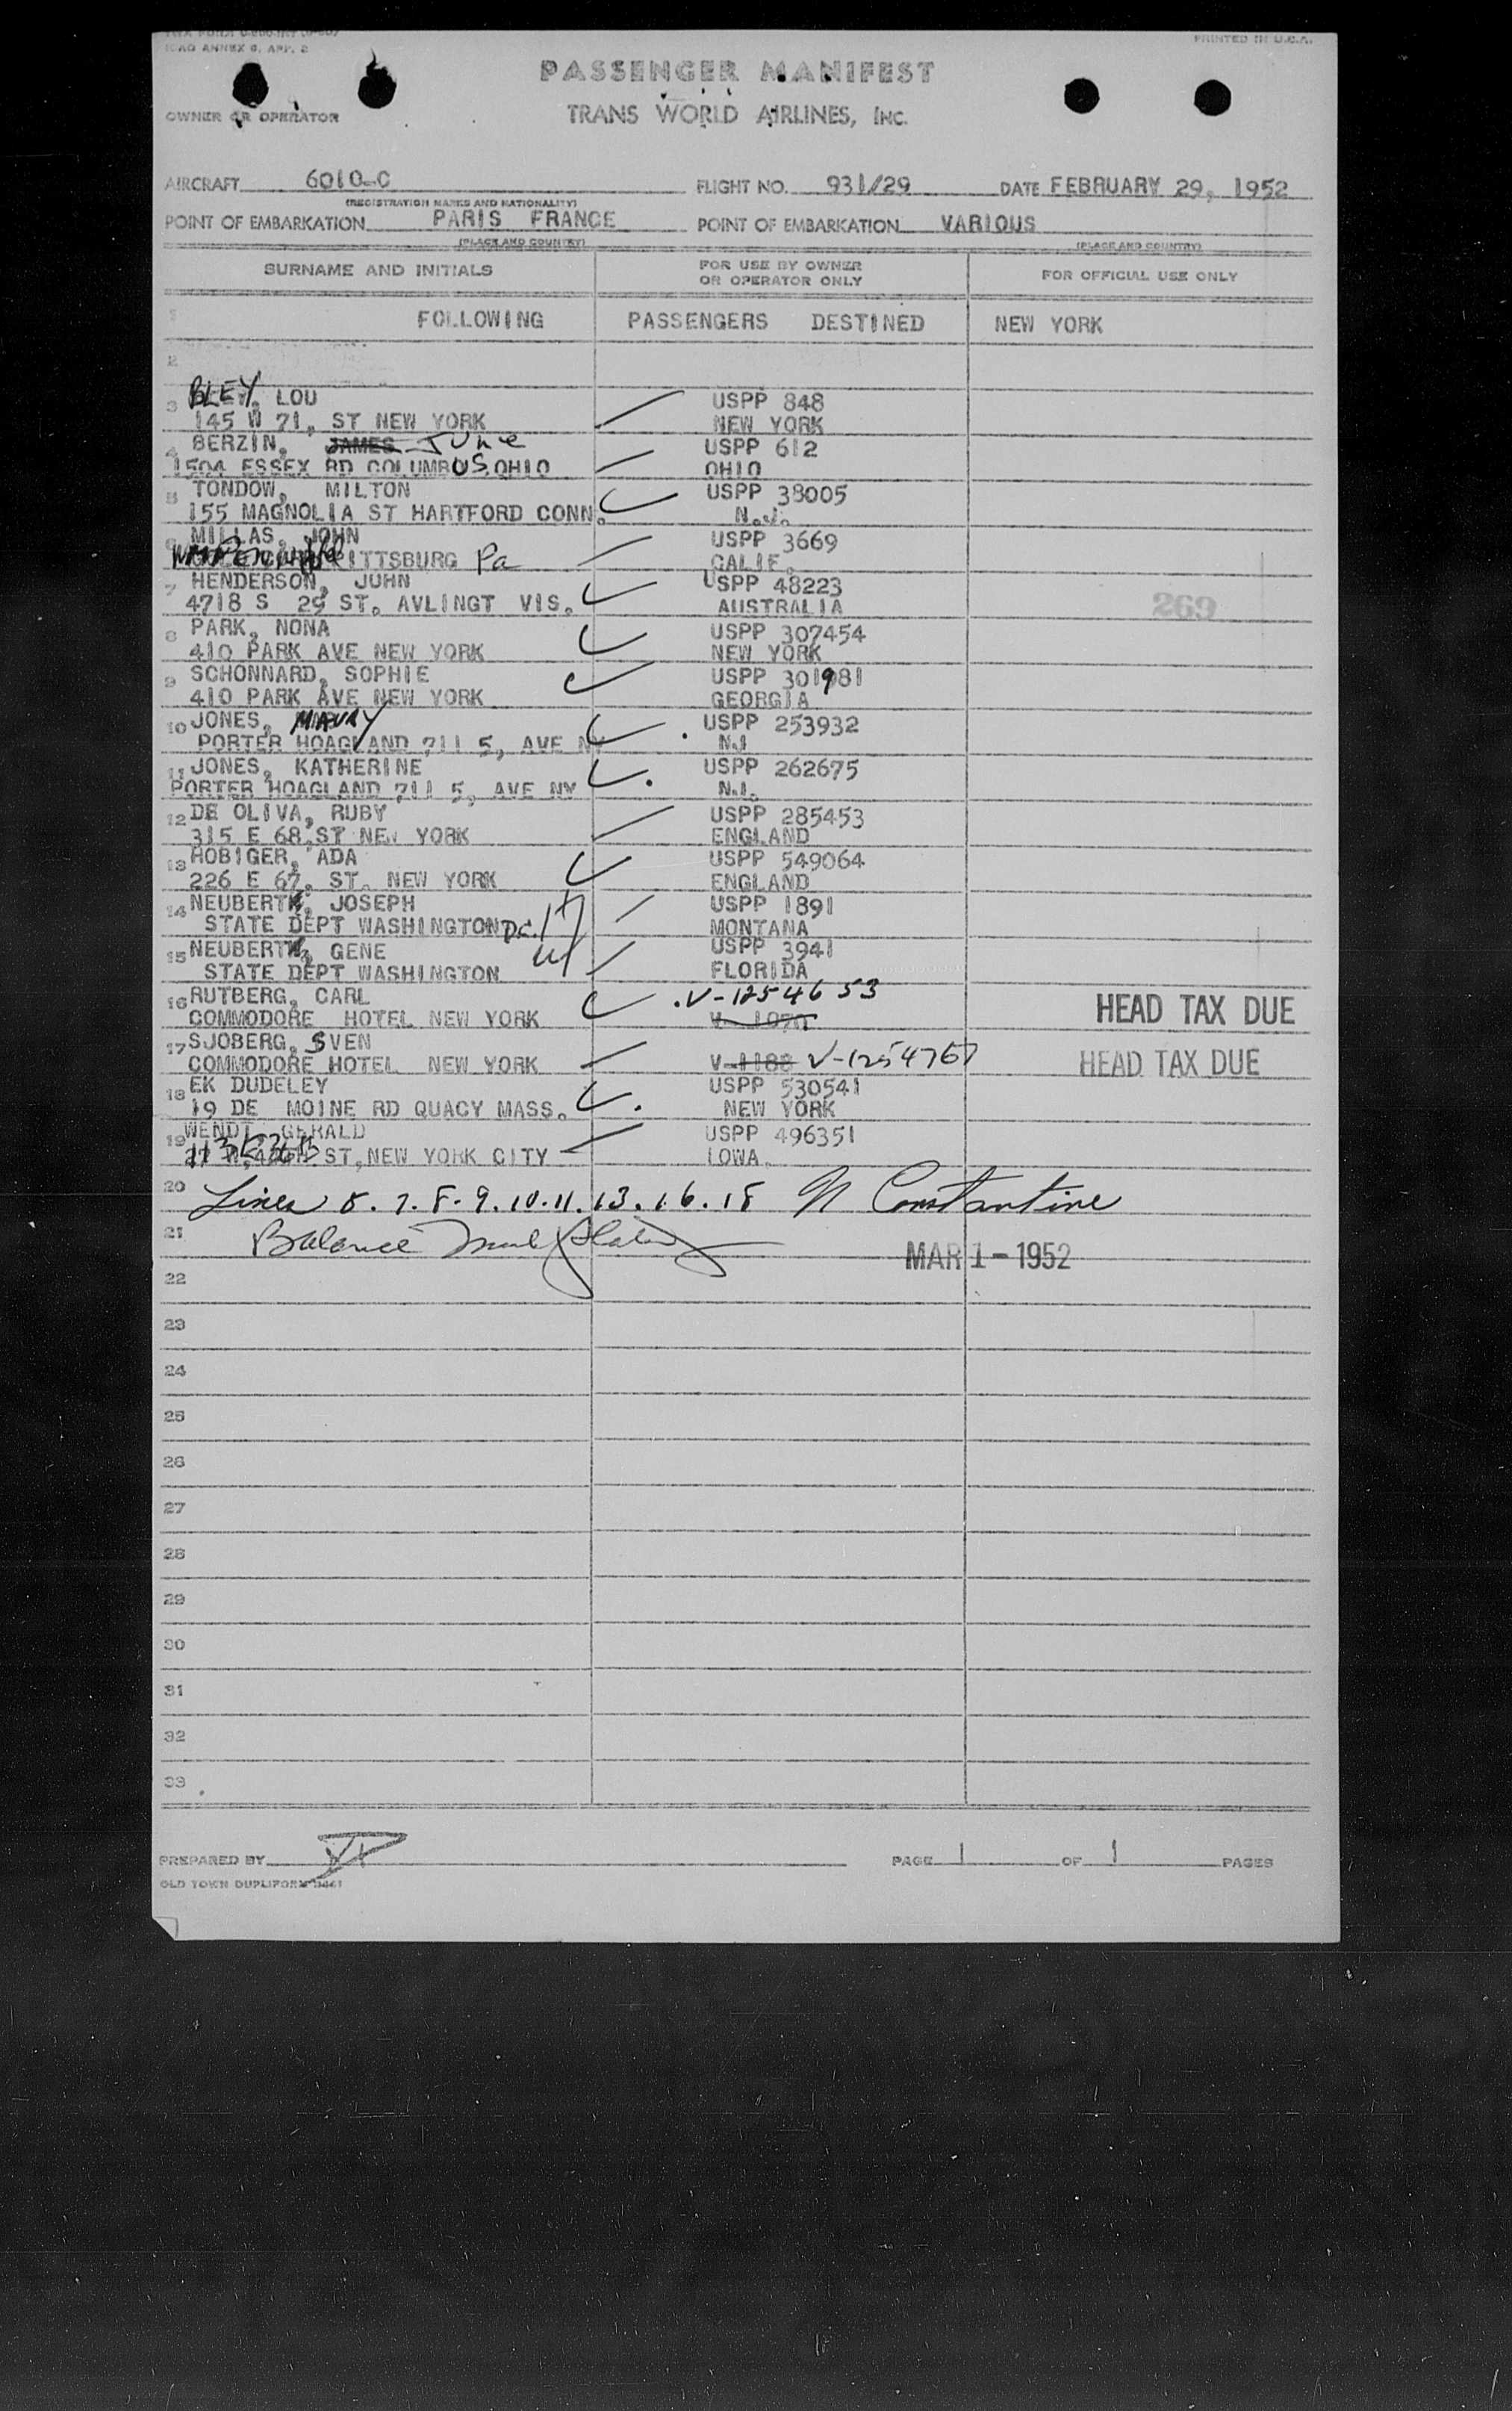 ICAO ANNEX 9, APP. 2
PRINTED IN U.S.A.
PASSENGER MANIFEST
OWNER OR OPERATOR TRANS WORLD AIRLINES, INC.
AIRCRAFT 6010-C FLIGHT NO. 931/29 DATE FEBRUARY 29, 1952
(REGISTRATION MARKS AND NATIONALITY)
POINT OF EMBARKATION PARIS FRANCE POINT OF EMBARKATION VARIOUS
(PLACE AND COUNTRY) (PLACE AND COUNTRY)
SURNAME AND INITIALS FOR USE BY OWNER OR OPERATOR ONLY FOR OFFICIAL USE ONLY
1 FOLLOWING PASSENGERS DESTINED NEW YORK
2
3 BLEY, LOU USPP 848
145 W 71, ST NEW YORK NEW YORK
4 BERZIN, JAMES June USPP 612
1504 ESSEX RD COLUMBUS, OHIO OHIO
5 TONDOW, MILTON USPP 38005
155 MAGNOLIA ST HARTFORD CONN. N.J.
6 MILLAS, JOHN USPP 3669
PITTSBURG Pa CALIF.
7 HENDERSON, JOHN USPP 48223
4718 S 29 ST. AVLINGT VIS. AUSTRALIA 269
8 PARK, NONA USPP 307454
410 PARK AVE NEW YORK NEW YORK
9 SCHONNARD, SOPHIE USPP 301981
410 PARK AVE NEW YORK GEORGIA
10 JONES, USPP 253932
PORTER HOAGLAND 711 5, AVE NY NJ
11 JONES, KATHERINE USPP 262675
PORTER HOAGLAND 711 5, AVE NY N.J.
12 DE OLIVA, RUBY USPP 285453
315 E 68 ST NEW YORK ENGLAND
13 HOBIGER, ADA USPP 549064
226 E 67, ST. NEW YORK ENGLAND
14 NEUBERT, JOSEPH USPP 1891
STATE DEPT WASHINGTON DC. MONTANA
15 NEUBERT, GENE USPP 3941
STATE DEPT WASHINGTON FLORIDA
16 RUTBERG, CARL V-1254653
COMMODORE HOTEL NEW YORK HEAD TAX DUE
17 SJOBERG, SVEN
COMMODORE HOTEL NEW YORK V-1188 V-1254767 HEAD TAX DUE
18 EK DUDELEY USPP 530541
19 DE MOINE RD QUACY MASS. NEW YORK
19 WENDT, GERALD USPP 496351
ST, NEW YORK CITY IOWA
20 Lines 5.7.8.9.10.11.13.16.18 N Constantine
21 Balance
MAR 1-1952
22
23
24
25
26
27
28
29
30
31
32
33
PREPARED BY PAGE 1 OF 1 PAGES
OLD TOWN DUPLIFORM